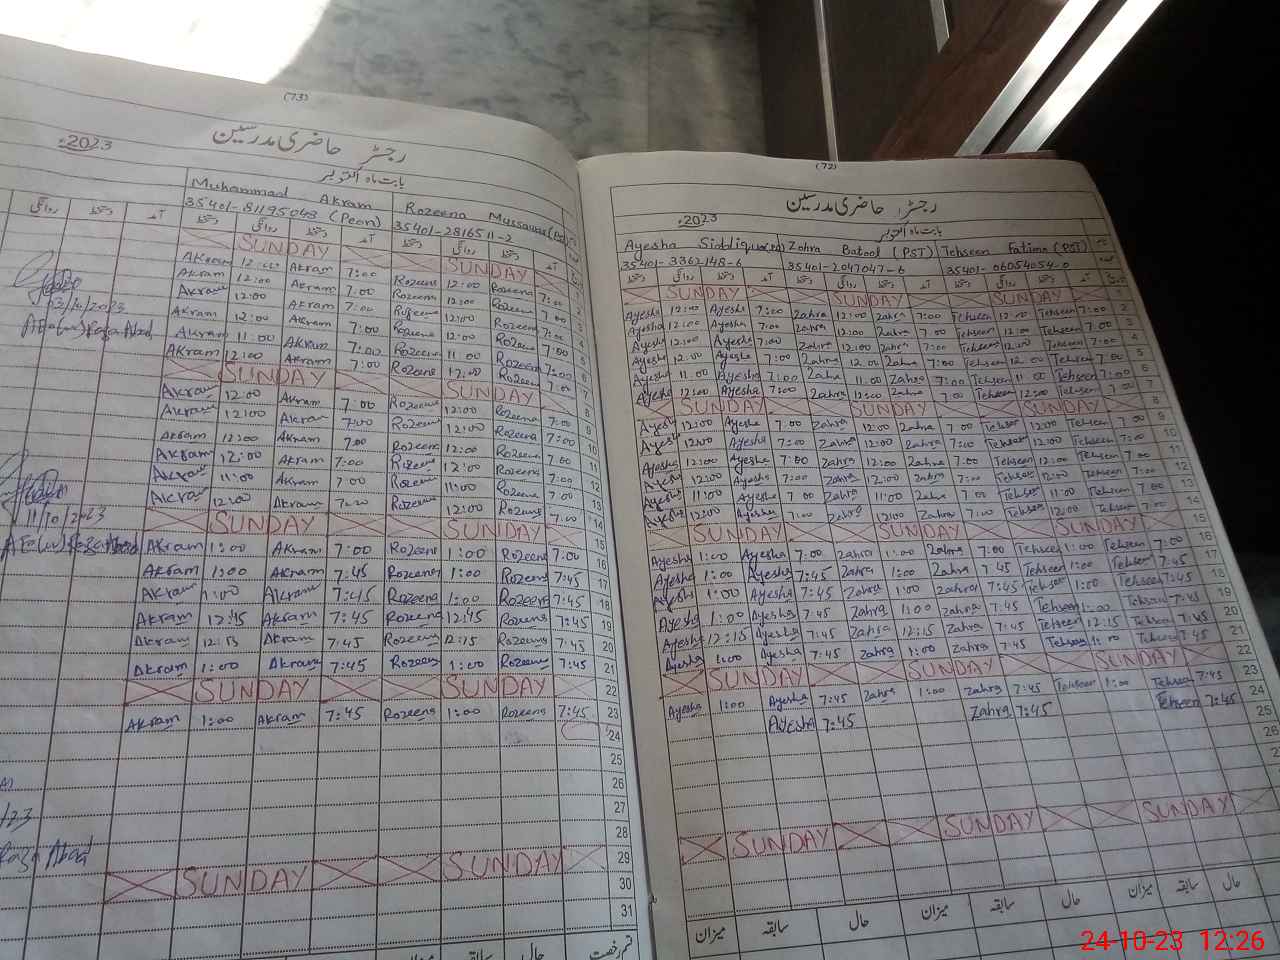 (73)
رجسٹر حاضری مدرسین
2023ء
بابت ماہ اکتوبر
Muhammad Akram
35401-8119504-3 (Peon)
روانگی دستخط آمد دستخط روانگی دستخط آمد دستخط روانگی دستخط آمد
SUNDAY SUNDAY 1
Akram 12:00 Akram 7:00 Rozeena 12:00 Rozeena 7:00 2
Akram 12:00 Akram 7:00 Rozeena 12:00 Rozeena 7:00 3
Akram 12:00 Akram 7:00 Rozeena 12:00 Rozeena 7:00 4
Akram 12:00 Akram 7:00 Rozeena 12:00 Rozeena 7:00 5
Akram 11:00 Akram 7:00 Rozeena 11:00 Rozeena 7:00 6
Akram 12:00 Akram 7:00 Rozeena 12:00 Rozeena 7:00 7
SUNDAY SUNDAY 8
Akram 12:00 Akram 7:00 Rozeena 12:00 Rozeena 7:00 9
Akram 12:00 Akram 7:00 Rozeena 12:00 Rozeena 7:00 10
Akram 12:00 Akram 7:00 Rozeena 12:00 Rozeena 7:00 11
Akram 12:00 Akram 7:00 Rozeena 12:00 Rozeena 7:00 12
Akram 11:00 Akram 7:00 Rozeena 11:00 Rozeena 7:00 13
Akram 12:00 Akram Rozeena 12:00 Rozeena 7:00 14
SUNDAY SUNDAY 15
Akram 1:00 Akram 7:00 Rozeena 1:00 Rozeena 7:00 16
Akram 1:00 Akram 7:45 Rozeena 1:00 Rozeena 7:45 17
Akram 1:00 Akram 7:45 Rozeena 1:00 Rozeena 7:45 18
Akram 12:45 Akram 7:45 Rozeena 12:45 Rozeena 7:45 19
Akram 12:15 Akram 7:45 Rozeena 12:15 Rozeena 7:45 20
Akram 1:00 Akram 7:45 Rozeena 1:00 Rozeena 7:45 21
SUNDAY SUNDAY 22
Akram 1:00 Akram 7:45 Rozeena 1:00 Rozeena 7:45 23
24
25
26
27
28
SUNDAY SUNDAY 29
30
31
11/10/2023
حال
(72)
رجسٹر حاضری مدرسین
2023ء
بابت ماہ اکتوبر
Zahra Batool (PST) Tehseen Fatima (PST)
35401-3362148-6 35401-2047047-6
روانگی دستخط آمد دستخط روانگی دستخط آمد دستخط روانگی دستخط آمد
SUNDAY SUNDAY SUNDAY 1
Ayesha 12:00 Ayesha 7:00 Zahra 12:00 Zahra 7:00 Tehseen 12:00 Tehseen 7:00 2
Ayesha 12:00 Ayesha 7:00 Zahra 12:00 Zahra 7:00 Tehseen 12:00 Tehseen 7:00 3
Ayesha 12:00 Ayesha 7:00 Zahra 12:00 Zahra 7:00 Tehseen 12:00 Tehseen 7:00 4
Ayesha 12:00 Ayesha 7:00 Zahra 12:00 Zahra 7:00 Tehseen 12:00 Tehseen 7:00 5
Ayesha 11:00 Ayesha 7:00 Zahra 11:00 Zahra 7:00 Tehseen 11:00 Tehseen 7:00 6
Ayesha 12:00 Ayesha 7:00 Zahra 12:00 Zahra 7:00 Tehseen 12:00 Tehseen 7:00 7
SUNDAY SUNDAY SUNDAY 8
Ayesha 12:00 Ayesha 7:00 Zahra 12:00 Zahra 7:00 Tehseen 12:00 Tehseen 7:00 9
Ayesha 12:00 Ayesha 7:00 Zahra 12:00 Zahra 7:00 Tehseen 12:00 Tehseen 7:00 10
Ayesha 12:00 Ayesha 7:00 Zahra 12:00 Zahra 7:00 Tehseen 12:00 Tehseen 7:00 11
Ayesha 12:00 Ayesha 7:00 Zahra 12:00 Zahra 7:00 Tehseen 12:00 Tehseen 7:00 12
Ayesha 11:00 Ayesha 7:00 Zahra 11:00 Zahra 7:00 Tehseen 11:00 Tehseen 7:00 13
Ayesha 12:00 Ayesha 7:00 Zahra 12:00 Zahra 7:00 Tehseen 12:00 Tehseen 7:00 14
SUNDAY SUNDAY SUNDAY 15
Ayesha 1:00 Ayesha 7:00 Zahra 1:00 Zahra 7:00 Tehseen 1:00 Tehseen 7:00 16
Ayesha 1:00 Ayesha 7:45 Zahra 1:00 Zahra 7:45 Tehseen 1:00 Tehseen 7:45 17
Ayesha 1:00 Ayesha 7:45 Zahra 1:00 Zahra 7:45 Tehseen 1:00 Tehseen 7:45 18
Ayesha 1:00 Ayesha 7:45 Zahra 1:00 Zahra 7:45 Tehseen 1:00 Tehseen 7:45 19
Ayesha 12:15 Ayesha 7:45 Zahra 12:15 Zahra 7:45 Tehseen 12:15 Tehseen 7:45 20
Ayesha 1:00 Ayesha 7:45 Zahra 1:00 Zahra 7:45 Tehseen 1:00 Tehseen 7:45 21
SUNDAY SUNDAY SUNDAY 22
Ayesha 1:00 Ayesha 7:45 Zahra 1:00 Zahra 7:45 Tehseen 1:00 Tehseen 7:45 23
Ayesha 7:45 Zahra 7:45 Tehseen 7:45 24
25
26
SUNDAY SUNDAY SUNDAY
میزان سابقہ حال میزان سابقہ حال میزان سابقہ حال
24-10-23 12:26